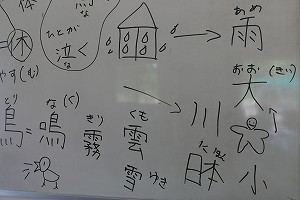 体
休
やす(む)
ひとが
泣く
な
あめ
雨
とり
鳥=鳴
な(く)
きり
霧
くも
雲
雪 ゆき
川
おお(きい)
大
にほん
日本
小